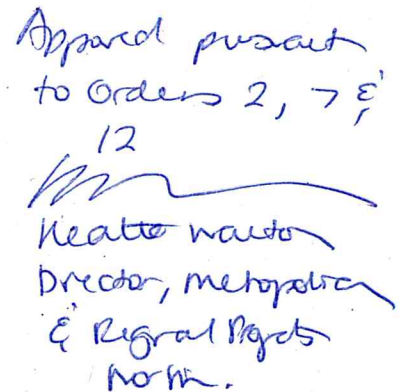 Approved pursuant
to Orders 2, 7 &
12
Heather Warton
Director, Metropolitan
& Regional Projects
North.